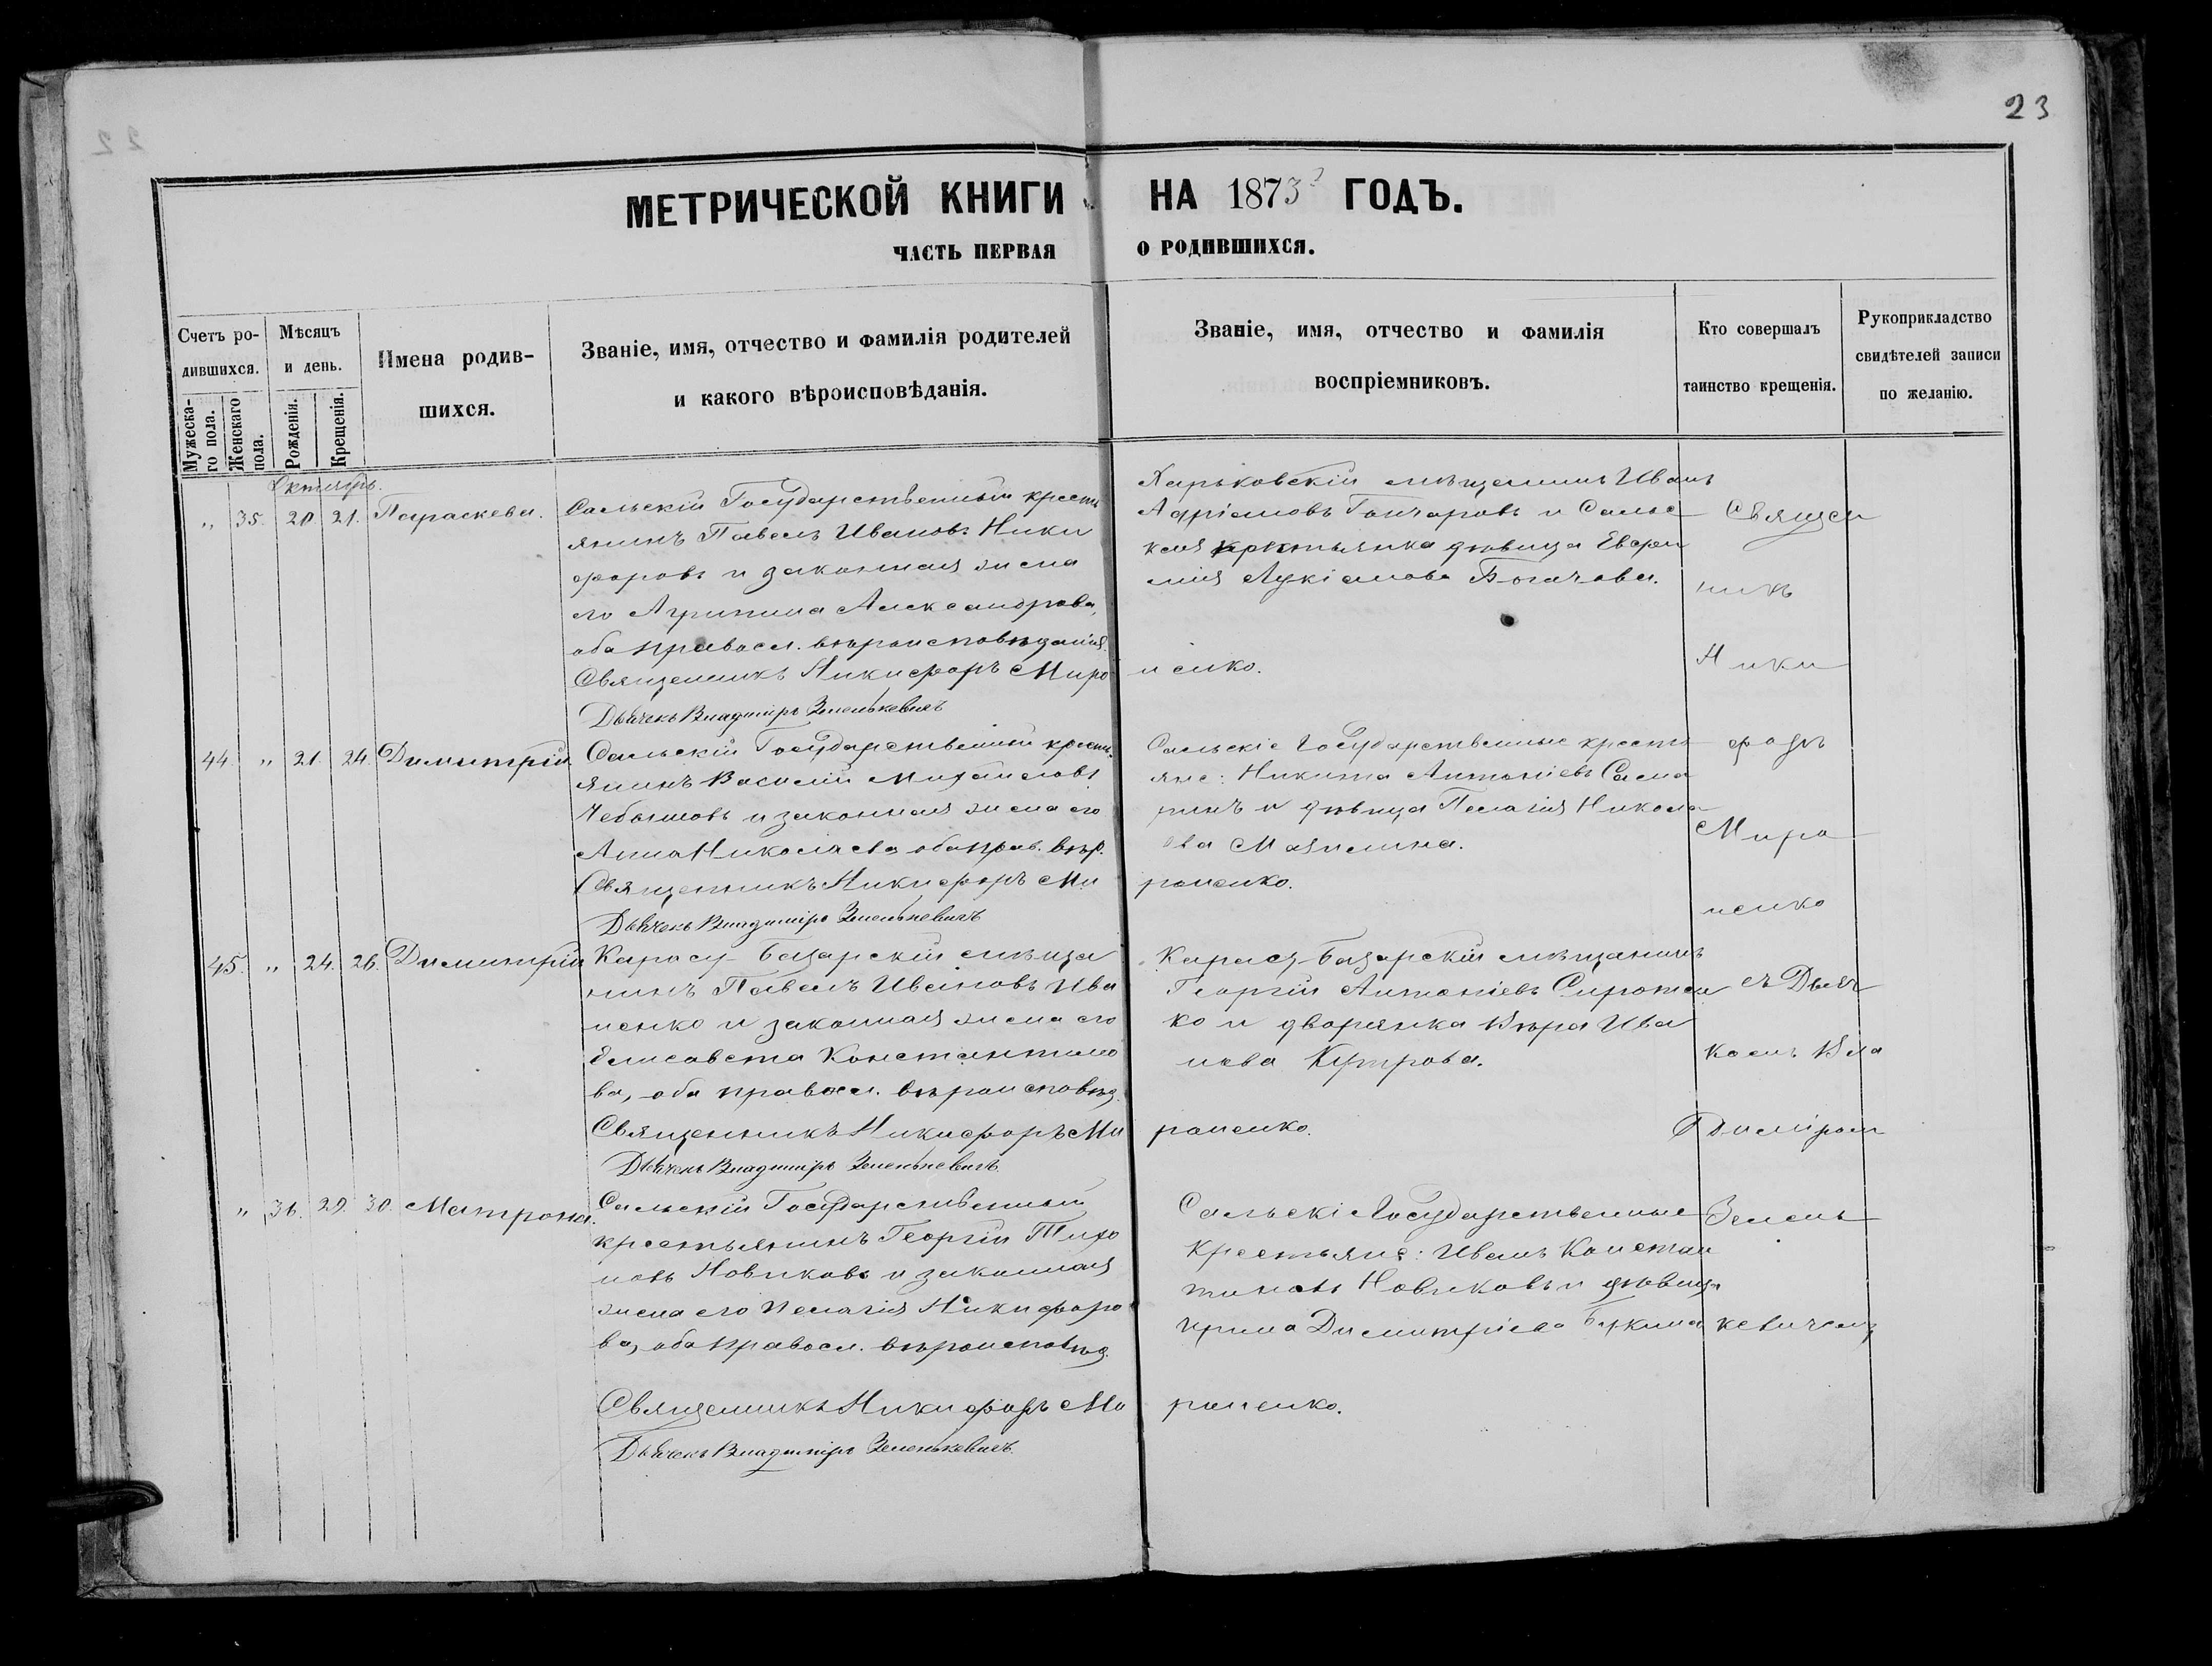 23
МЕТРИЧЕСКОЙ КНИГИ НА 1873 ГОДЪ.
ЧАСТЬ ПЕРВАЯ О РОДИВШИХСЯ.
Счетъ ро-
дившихся.
Мужеска-
го пола.
Женскаго
пола.
Мѣсяцъ
и день.
Рожденія.
Крещенія.
Имена родив-
шихся.
Званіе, имя, отчество и фамилія родителей
и какого вѣроисповѣданія.
Званіе, имя, отчество и фамилія
воспріемниковъ.
Кто совершалъ
таинство крещенія.
Рукоприкладство
свидѣтелей записи
по желанію.
Октябрь.
" 35. 20. 21. Параскева.
Сальскій Государственный кресть
янинъ Павелъ Ивановъ Ники
форовъ и законная жена
его Агрипина Александрова,
оба правосл. вѣроисповѣданія.
Священникъ Никифоръ Миро
ненко.
Дьячекъ Владиміръ Зеленькевичъ
Харьковскій мѣщанинъ Иванъ
Адріановъ Гончаровъ и Сальс
кая крестьянка дѣвица Евфи
мія Лукіанова Богачова.
44. " 21. 24. Димитрій
Сальскій Государственный кресть
янинъ Василій Михаиловъ
Чебышовъ и законная жена его
Анна Николаева оба прав. вѣр.
Священникъ Никифоръ Ми
роненко.
Дьячекъ Владиміръ Зеленькевичъ
Сальскіе Государственные кресть
яне: Никита Антоніевъ Сама
ринъ и дѣвица Пелагія Никола
ева
45. " 24. 26. Димитрій
Карасу-Базарскій мѣща
нинъ Павелъ Ивановъ Ива
ненко и законная жена его
Елисавета Константино
ва, оба правосл. вѣроисповѣд.
Священникъ Никифоръ Ми
роненко.
Дьячекъ Владиміръ Зеленькевичъ
Карасу-Базарскій мѣщанинъ
Георгій Антоніевъ Сиротен
ко и дворянка Вѣра Ива
нова
" 36. 29. 30. Матрона.
Сальскій Государственный
крестьянинъ Георгій Тихо
новъ Новиковъ и законная
жена его Пелагія Никифоро
ва, оба правосл. вѣроисповѣд.
Священникъ Никифоръ Ми
роненко.
Дьячекъ Владиміръ Зеленькевичъ
Сальскіе Государственные
крестьяне: Иванъ Констан
тиновъ Новиковъ и дѣвица
Ирина Димитріева
Священ
никъ
Ники
форъ
Миро
ненко
съ Дьяч
комъ Вла
диміром
Зелень
кевичемъ